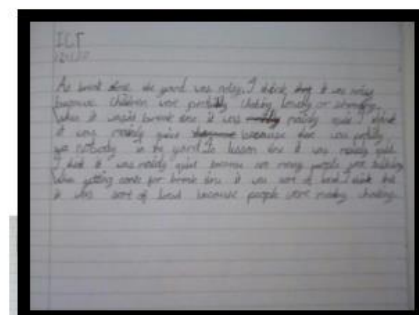 ICT
At break time the yard was noisy. I think it was noisy
because children were probably chatting loudly or shouting.
When it wasn't break time it was mainly quiet. I think
it was mainly quiet because there was probably
nobody in the yard. In lesson time it was mainly quiet.
I think it was mainly quiet because not many people were talking.
When getting coats for break time it was sort of loud. I think that
it was sort of loud because people were mainly chatting.